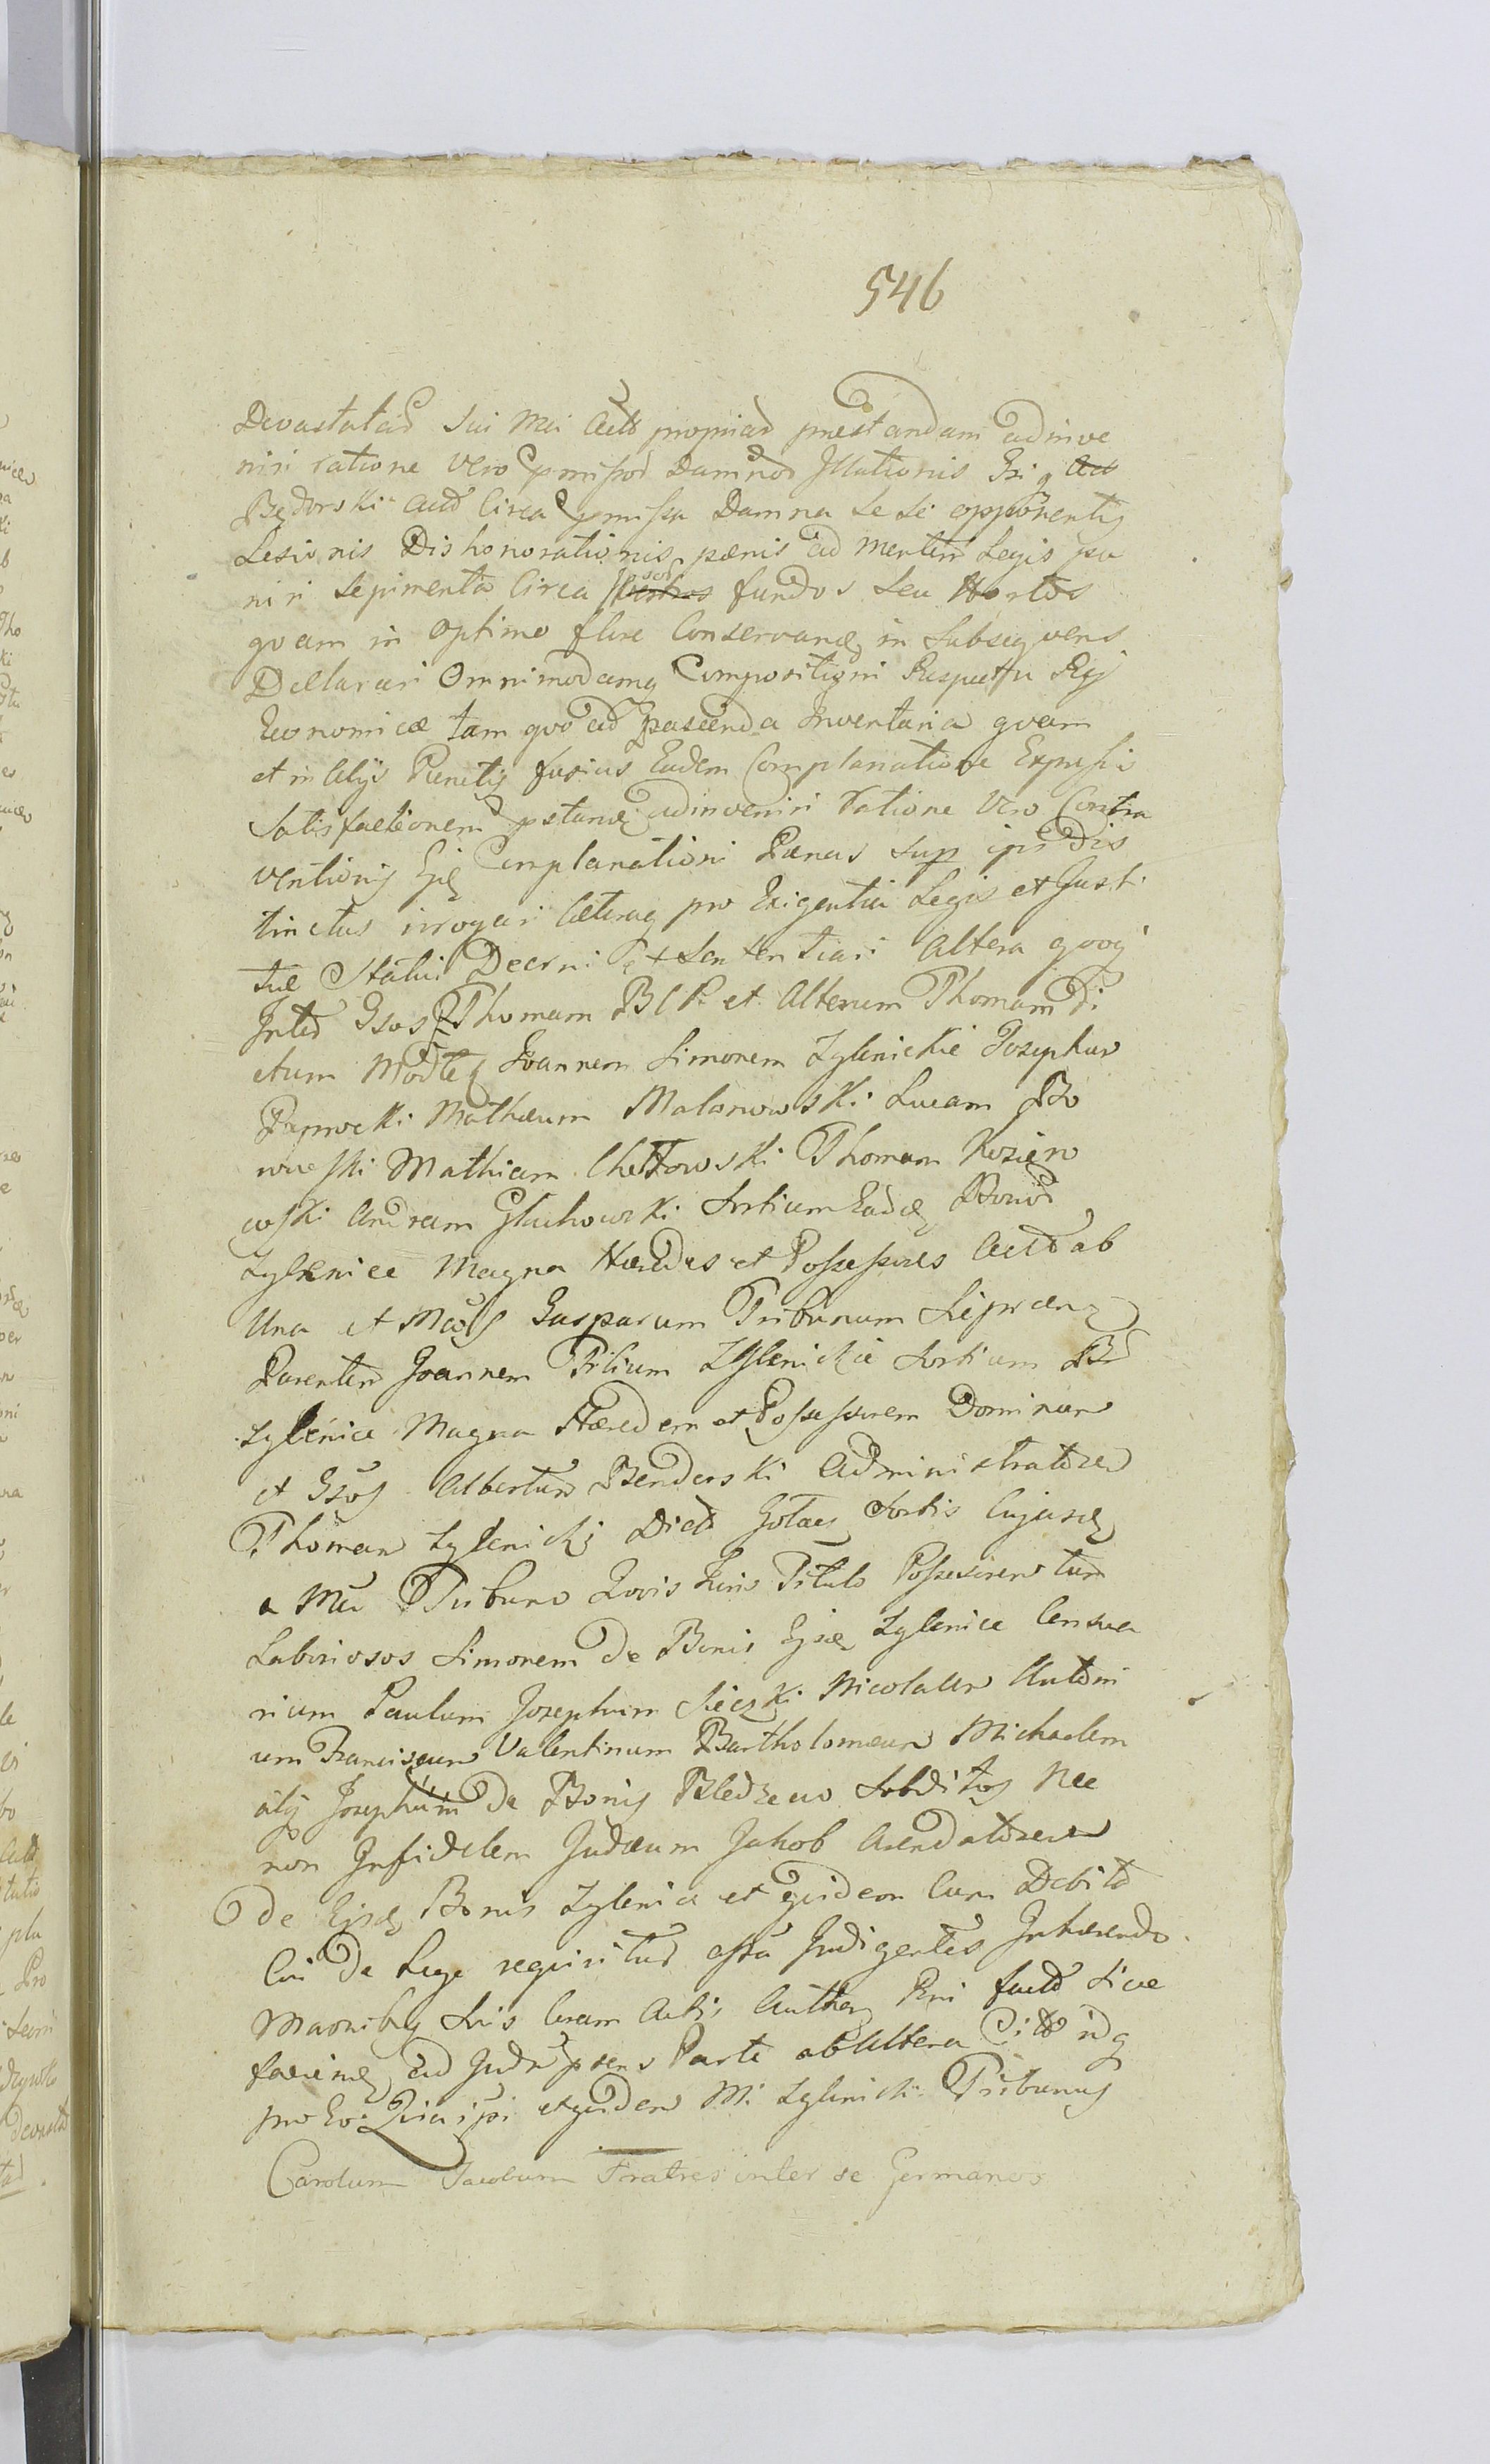 546
Devastatad Sui Mci Actt propriad prestandam adinve
niri ratione vero pmissod Damnod Illationis Gsi q
Będorski Actt Circa pmissa Damna Se Se opponentis
Lesionis Dishonorationis pænis ad mentem Legis pu
niri Sepimenta Circa fundos Seu Hortos
qvam in optimo flore Conservand in Subseqvens
Declarari Omnimodamq Compositioni Respectu Rej
Economicæ tam qvo ad pascenda Inventaria qvam
et in Alijs Punctis fusius Eadem Complanatione Expressis
Satisfactionem pstand adinveniri Ratione Vero Contra
ventionis Ejd Complanationi Pænas Sup ips Dis
tinctus irrogari Cæteraq pro Exigentia Legis et Justi
tiæ Statui Decerni et Sententiari Altera qvoq
Inter Gsos Thomam B C P et Alterum Thomam Di
ctum Joannem Simonem Zylenickie Josephum
Paprocki Mathæum Malonowski Lucam Bo
rowski Mathiam Chettowski Thomam Kozien
owski Andream Gluchowski Sortium Eadd Bonod
Zylenice Magna Hæredes et Possessores Actt ab
Una et Mcos Gasparum Tribunum Lipræn
Parentem Joannem Filium Zylenickie Sortium Bd
Zylenice Magna Hæredem et Possessorem Dominum
et Gsos Albertum Benderski Administratorem
Thomam Zylenicki Dictt Gołas Sortis Cujusd
a Mci Tribuno Qovis Juris Titulo Possessorem tum
Laboriosos Simonem de Bonis Ejsd Zylenice Censua
rium Paulum Josephum Nicolaum Antoni
um Franciscum Valentinum Bartholomæum Michaelem
alij Josephum de Bonis Bledzewo Subditos Nec
non Infidelem Judæum Jakob Arendatorem
De Ejsd Bonis Zylenice et qvidem Cum Debita
Cui De Lege reqviritur Assa Indigentes Inhærendo
Manibq Suis Coram Actis Authen Pni factt Sive
faciend ad Judm psens Parte ab Altera Citt idq
pro Eo Qvia ipsi et qvidem M. Zylenicki Tribunus
Carolum Jacobum Fratres inter se Germanos